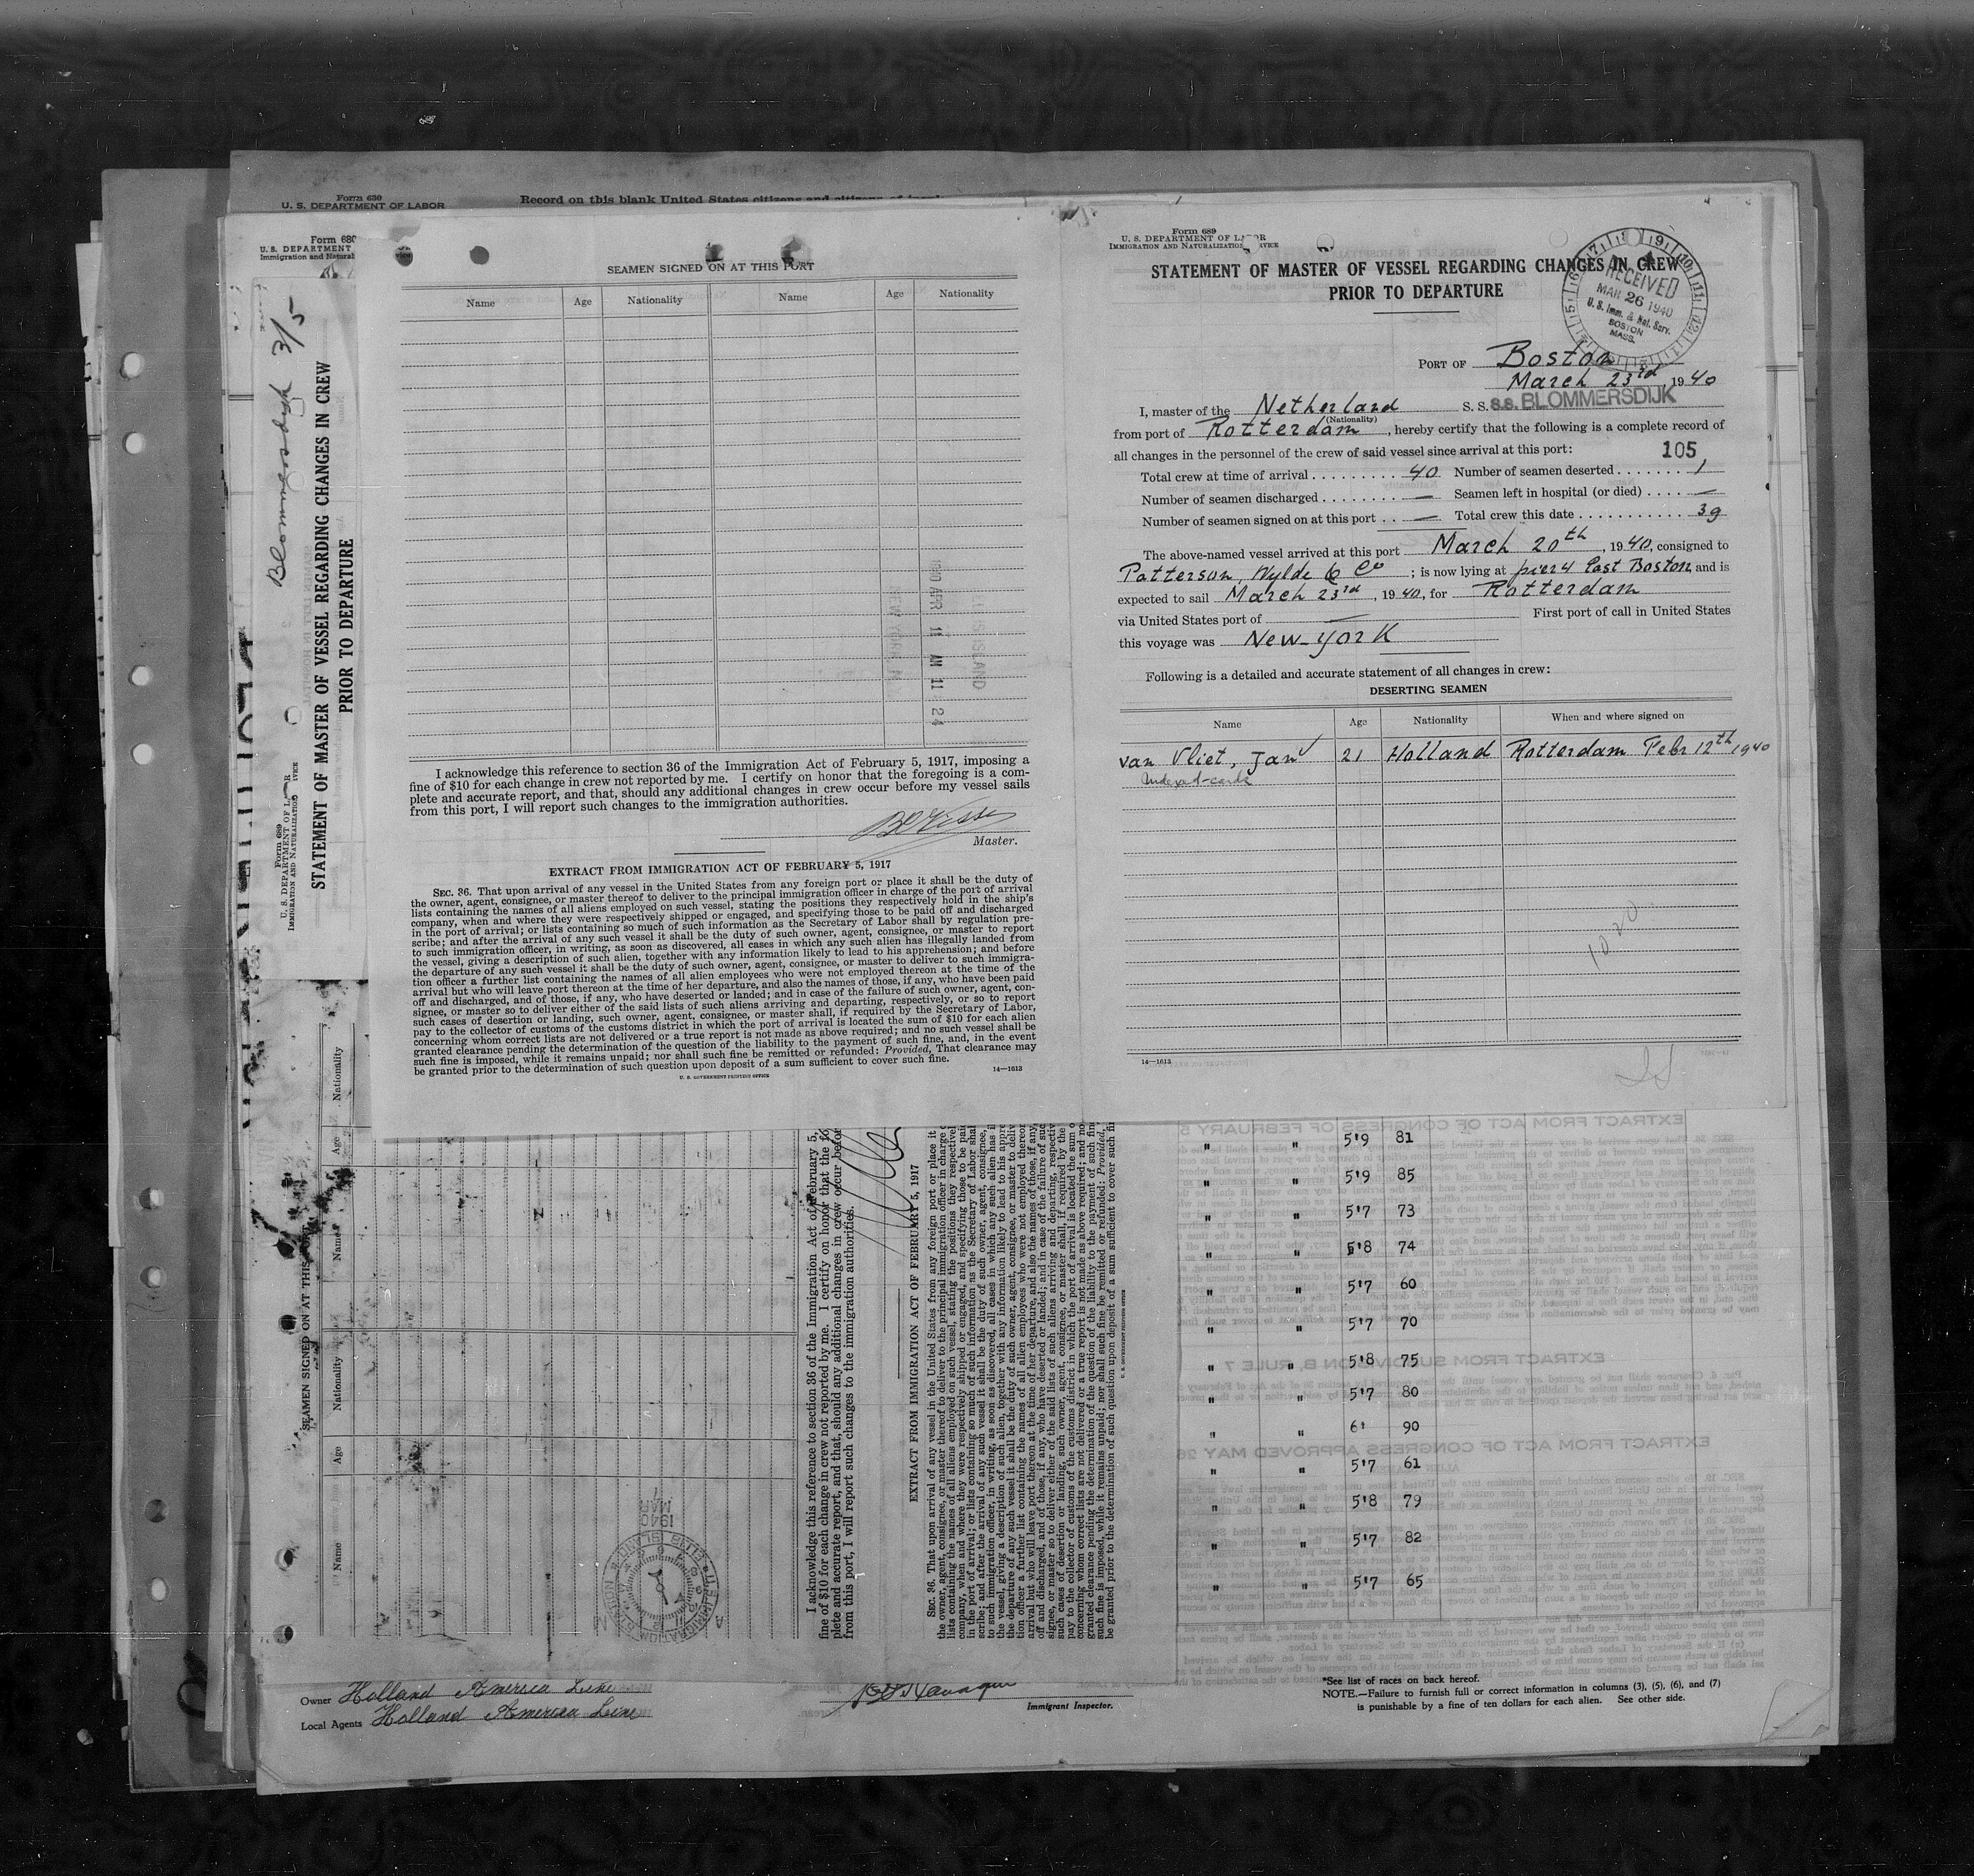 Form 630
U. S. DEPARTMENT OF LABOR
Record on this blank United States citizens and citizens of
Form 680
U. S. DEPARTMENT
Immigration and Natural
Blommersdijk 3/5
Form 689
U. S. DEPARTMENT OF LABOR
IMMIGRATION AND NATURALIZATION SERVICE
STATEMENT OF MASTER OF VESSEL REGARDING CHANGES IN CREW
PRIOR TO DEPARTURE
SEAMEN SIGNED ON AT THIS PORT
Name Age Nationality Name Age Nationality
1940 APR 11 AM 11 24
I acknowledge this reference to section 36 of the Immigration Act of February 5, 1917, imposing a
fine of $10 for each change in crew not reported by me. I certify on honor that the foregoing is a com-
plete and accurate report, and that, should any additional changes in crew occur before my vessel sails
from this port, I will report such changes to the immigration authorities.
Master.
EXTRACT FROM IMMIGRATION ACT OF FEBRUARY 5, 1917
SEC. 36. That upon arrival of any vessel in the United States from any foreign port or place it shall be the duty of
the owner, agent, consignee, or master thereof to deliver to the principal immigration officer in charge of the port of arrival
lists containing the names of all aliens employed on such vessel, stating the positions they respectively hold in the ship's
company, when and where they were respectively shipped or engaged, and specifying those to be paid off and discharged
in the port of arrival; or lists containing so much of such information as the Secretary of Labor shall by regulation pre-
scribe; and after the arrival of any such vessel it shall be the duty of such owner, agent, consignee, or master to report
to such immigration officer, in writing, as soon as discovered, all cases in which any such alien has illegally landed from
the vessel, giving a description of such alien, together with any information likely to lead to his apprehension; and before
the departure of any such vessel it shall be the duty of such owner, agent, consignee, or master to deliver to such immigra-
tion officer a further list containing the names of all alien employees who were not employed thereon at the time of the
arrival but who will leave port thereon at the time of her departure, and also the names of those, if any, who have been paid
off and discharged, and of those, if any, who have deserted or landed; and in case of the failure of such owner, agent, con-
signee, or master so to deliver either of the said lists of such aliens arriving and departing, respectively, or so to report
such cases of desertion or landing, such owner, agent, consignee, or master shall, if required by the Secretary of Labor,
pay to the collector of customs of the customs district in which the port of arrival is located the sum of $10 for each alien
concerning whom correct lists are not delivered or a true report is not made as above required; and no such vessel shall be
granted clearance pending the determination of the question of the liability to the payment of such fine, and, in the event
such fine is imposed, while it remains unpaid; nor shall such fine be remitted or refunded: Provided, That clearance may
be granted prior to the determination of such question upon deposit of a sum sufficient to cover such fine.
U. S. GOVERNMENT PRINTING OFFICE 14—1613
Form 689
U. S. DEPARTMENT OF LABOR
IMMIGRATION AND NATURALIZATION SERVICE
STATEMENT OF MASTER OF VESSEL REGARDING CHANGES IN CREW
PRIOR TO DEPARTURE
RECEIVED
MAR 26 1940
U. S. Imm. & Nat. Serv.
BOSTON
MASS.
PORT OF Boston
March 23rd, 1940
I, master of the Netherland S. S. S.S. BLOMMERSDIJK
(Nationality)
from port of Rotterdam, hereby certify that the following is a complete record of
all changes in the personnel of the crew of said vessel since arrival at this port: 105
Total crew at time of arrival . . . . . . . . . . 40 Number of seamen deserted . . . . . . . . 1
Number of seamen discharged . . . . . . . . . — Seamen left in hospital (or died) . . . . . —
Number of seamen signed on at this port . . — Total crew this date . . . . . . . . . . . . 39
The above-named vessel arrived at this port March 20th, 1940, consigned to
Patterson, Wylde & Co ; is now lying at pier 4 East Boston, and is
expected to sail March 23rd, 1940, for Rotterdam
via United States port of — First port of call in United States
this voyage was New-York
Following is a detailed and accurate statement of all changes in crew:
DESERTING SEAMEN
Name Age Nationality When and where signed on
van Vliet, Jan 21 Holland Rotterdam Febr 12th 1940
Indexed-cards
1020
14—1613
SEAMEN SIGNED ON AT THIS PORT
Name Age Nationality Name Age Nationality
1940
MAR
7
I acknowledge this reference to section 36 of the Immigration Act of February 5,
fine of $10 for each change in crew not reported by me. I certify on honor that the fo
plete and accurate report, and that, should any additional changes in crew occur before
from this port, I will report such changes to the immigration authorities.
EXTRACT FROM IMMIGRATION ACT OF FEBRUARY 5, 1917
SEC. 36. That upon arrival of any vessel in the United States from any foreign port or place it
" " 5'9 81
" " 5'9 85
" " 5'7 73
" " 5'8 74
" " 5'7 60
" " 5'7 70
" " 5'8 75
" " 5'7 80
" " 6' 90
" " 5'7 61
" " 5'8 79
" " 5'7 82
" " 5'7 65
Owner Holland America Line
Local Agents Holland America Line
Immigrant Inspector.
*See list of races on back hereof.
NOTE.—Failure to furnish full or correct information in columns (3), (5), (6), and (7)
is punishable by a fine of ten dollars for each alien. See other side.